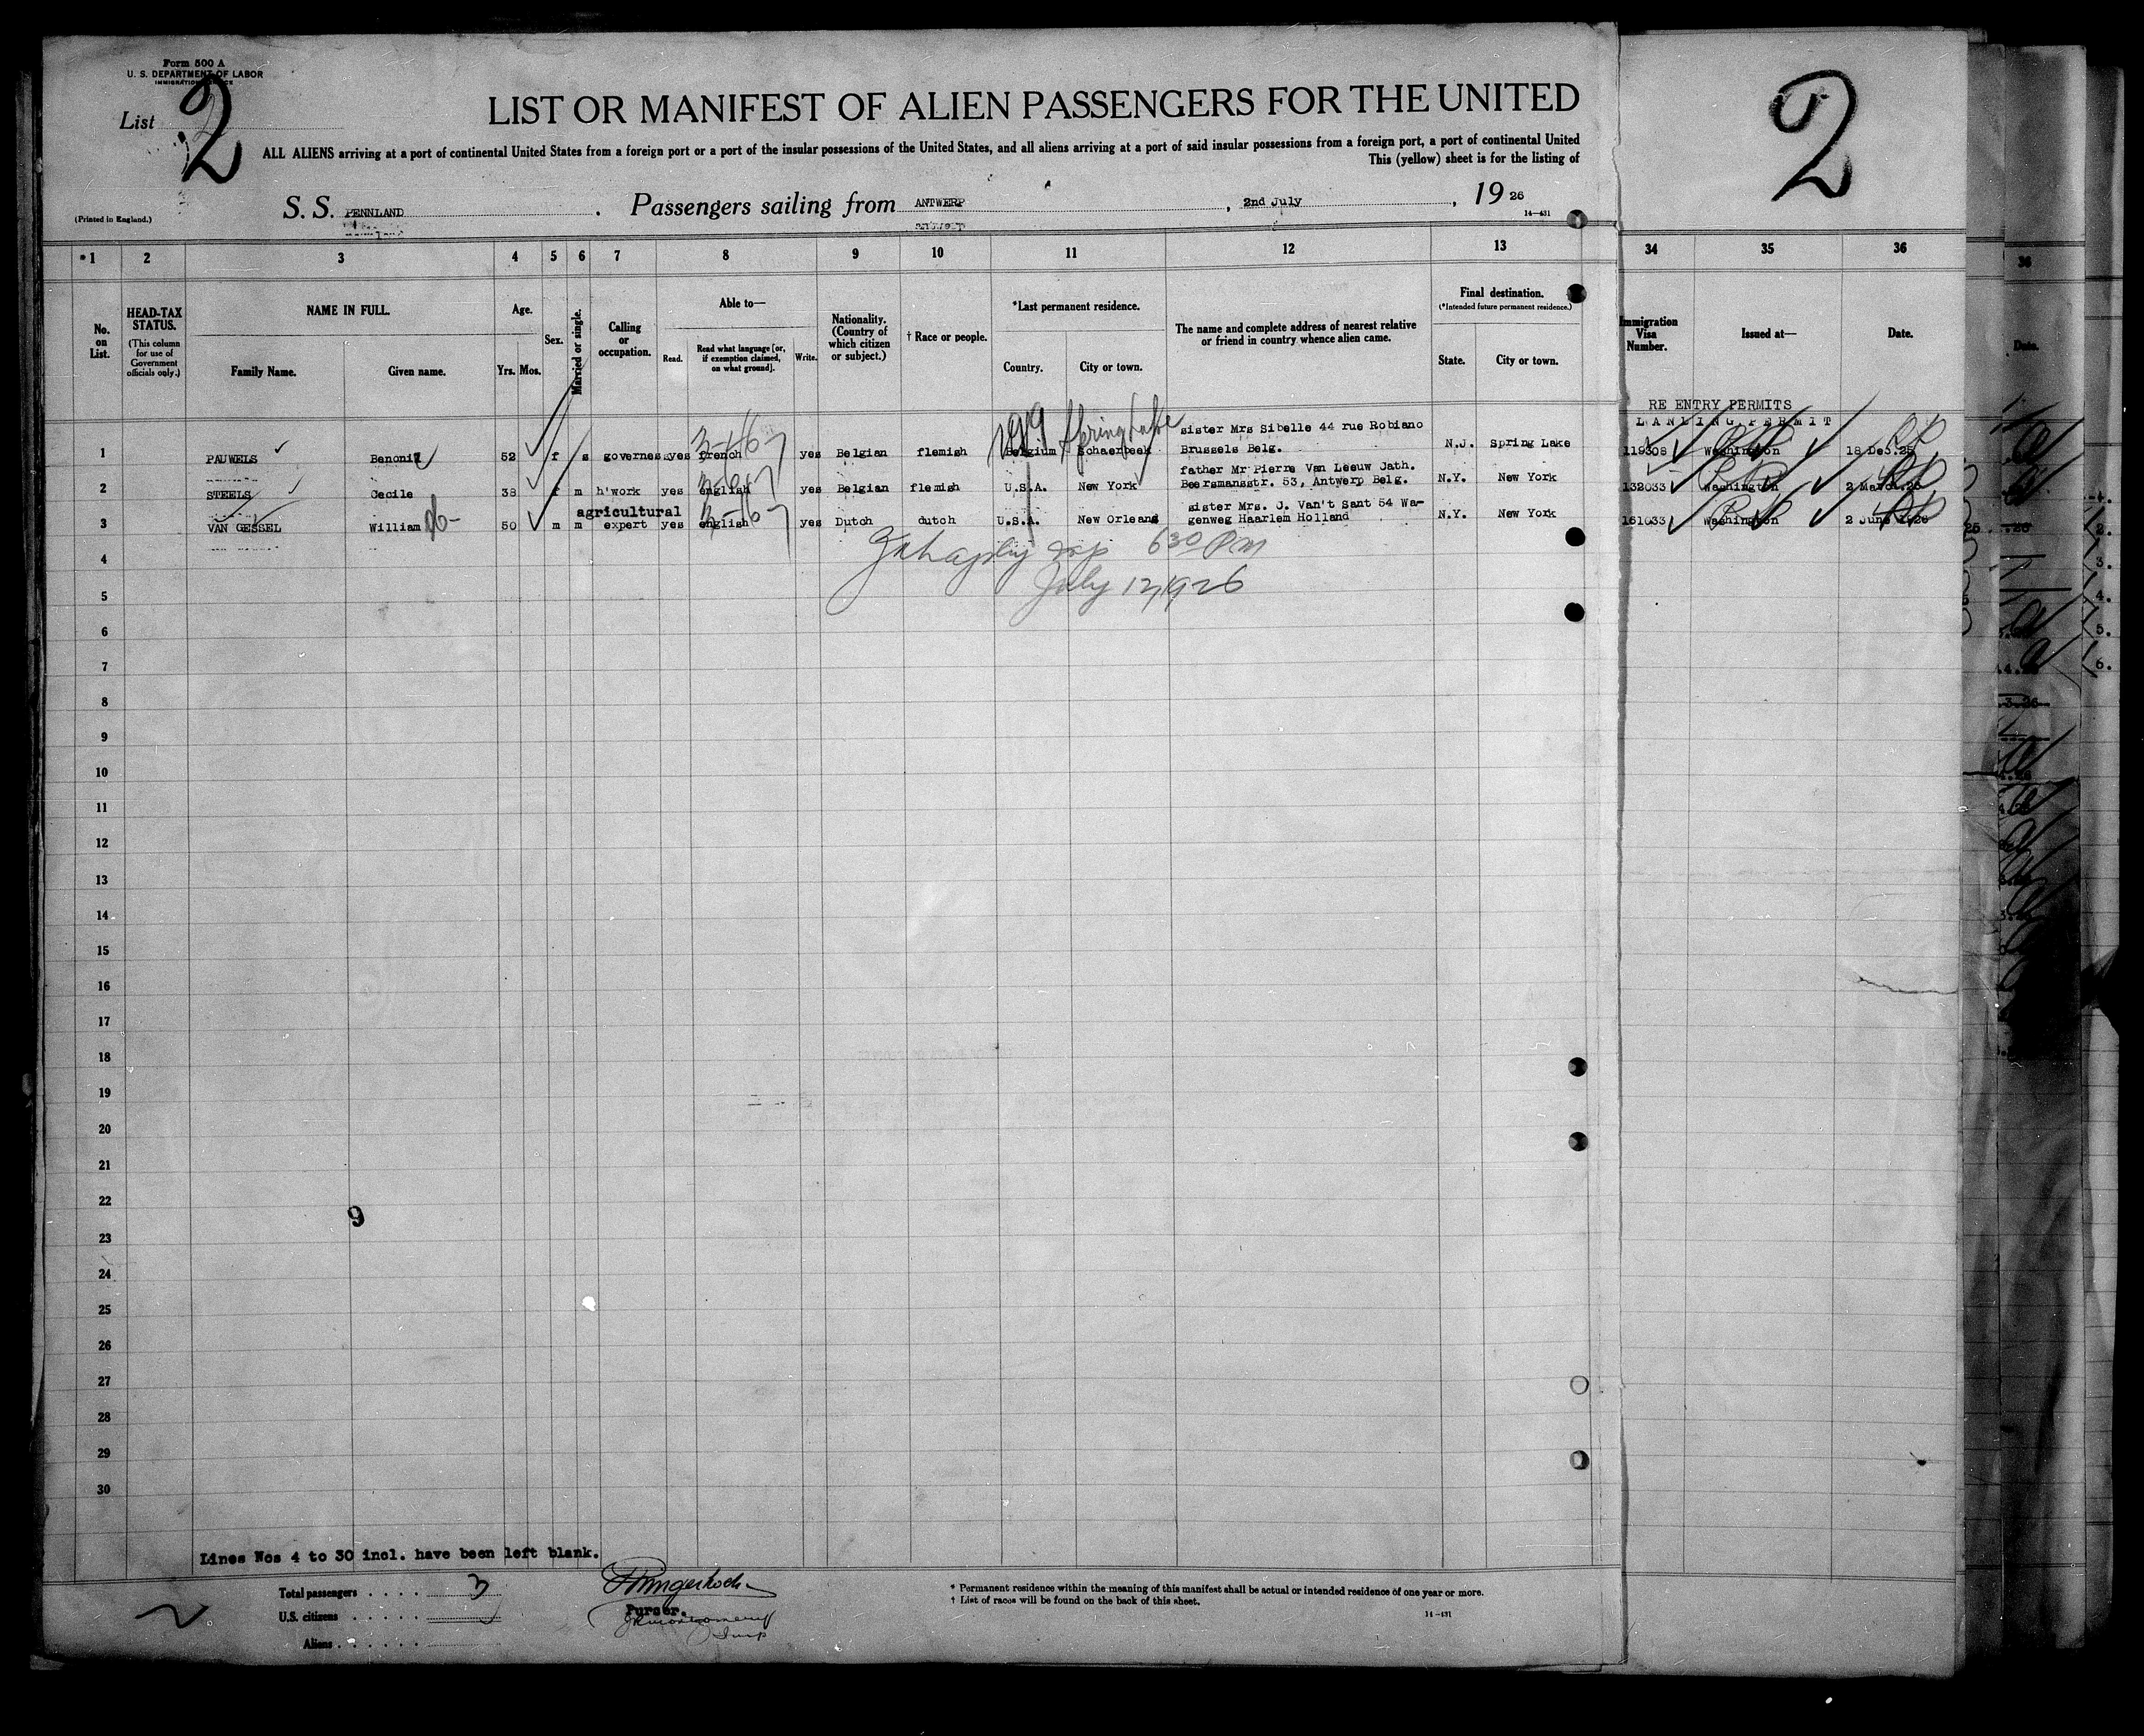 Form 500 A
U. S. DEPARTMENT OF LABOR
IMMIGRATION SERVICE
List 2
LIST OR MANIFEST OF ALIEN PASSENGERS FOR THE UNITED
2
ALL ALIENS arriving at a port of continental United States from a foreign port or a port of the insular possessions of the United States, and all aliens arriving at a port of said insular possessions from a foreign port, a port of continental United
This (yellow) sheet is for the listing of
(Printed in England.)
S. S. PENNLAND . Passengers sailing from ANTWERP , 2nd July , 19 26
14—431
*1 2 3 4 5 6 7 8 9 10 11 12 13 34 35 36
No. on List.
HEAD-TAX STATUS.
(This column for use of Government officials only.)
NAME IN FULL.
Family Name. Given name.
Age.
Yrs. Mos.
Sex.
Married or single.
Calling or occupation.
Able to—
Read. Read what language [or, if exemption claimed, on what ground]. Write.
Nationality. (Country of which citizen or subject.)
† Race or people.
*Last permanent residence.
Country. City or town.
The name and complete address of nearest relative or friend in country whence alien came.
Final destination.
(*Intended future permanent residence.)
State. City or town.
Immigration Visa Number.
Issued at—
Date.
RE ENTRY PERMITS
LANDING PERMIT
Spring Lake
1 PAUWELS 52 f s governess yes french yes Belgian flemish Belgium Schaerbeek sister Mrs Sibelle 44 rue Robiano Brussels Belg. N.J. Spring Lake 119308 Washington
2 STEELS Cecile 38 f m h'work yes english yes Belgian flemish U.S.A. New York father Mr Pierre Van Leeuw Jath. Beersmansstr. 53, Antwerp Belg. N.Y. New York 132033 Washington
3 VAN GESSEL William 50 m m agricultural expert yes english yes Dutch dutch U.S.A. New Orleans sister Mrs. J. Van't Sant 54 Wagenweg Haarlem Holland N.Y. New York 161033 Washington 2 June
4
6 30 PM
5
July 12, 1926
6
7
8
9
10
11
12
13
14
15
16
17
18
19
20
21
22
9
23
24
25
26
27
28
29
30
Lines Nos 4 to 30 incl. have been left blank.
Total passengers . . . . 3
U.S. citizens . . . . .
Aliens . . . . . .
Purser.
* Permanent residence within the meaning of this manifest shall be actual or intended residence of one year or more.
† List of races will be found on the back of this sheet.
14—431